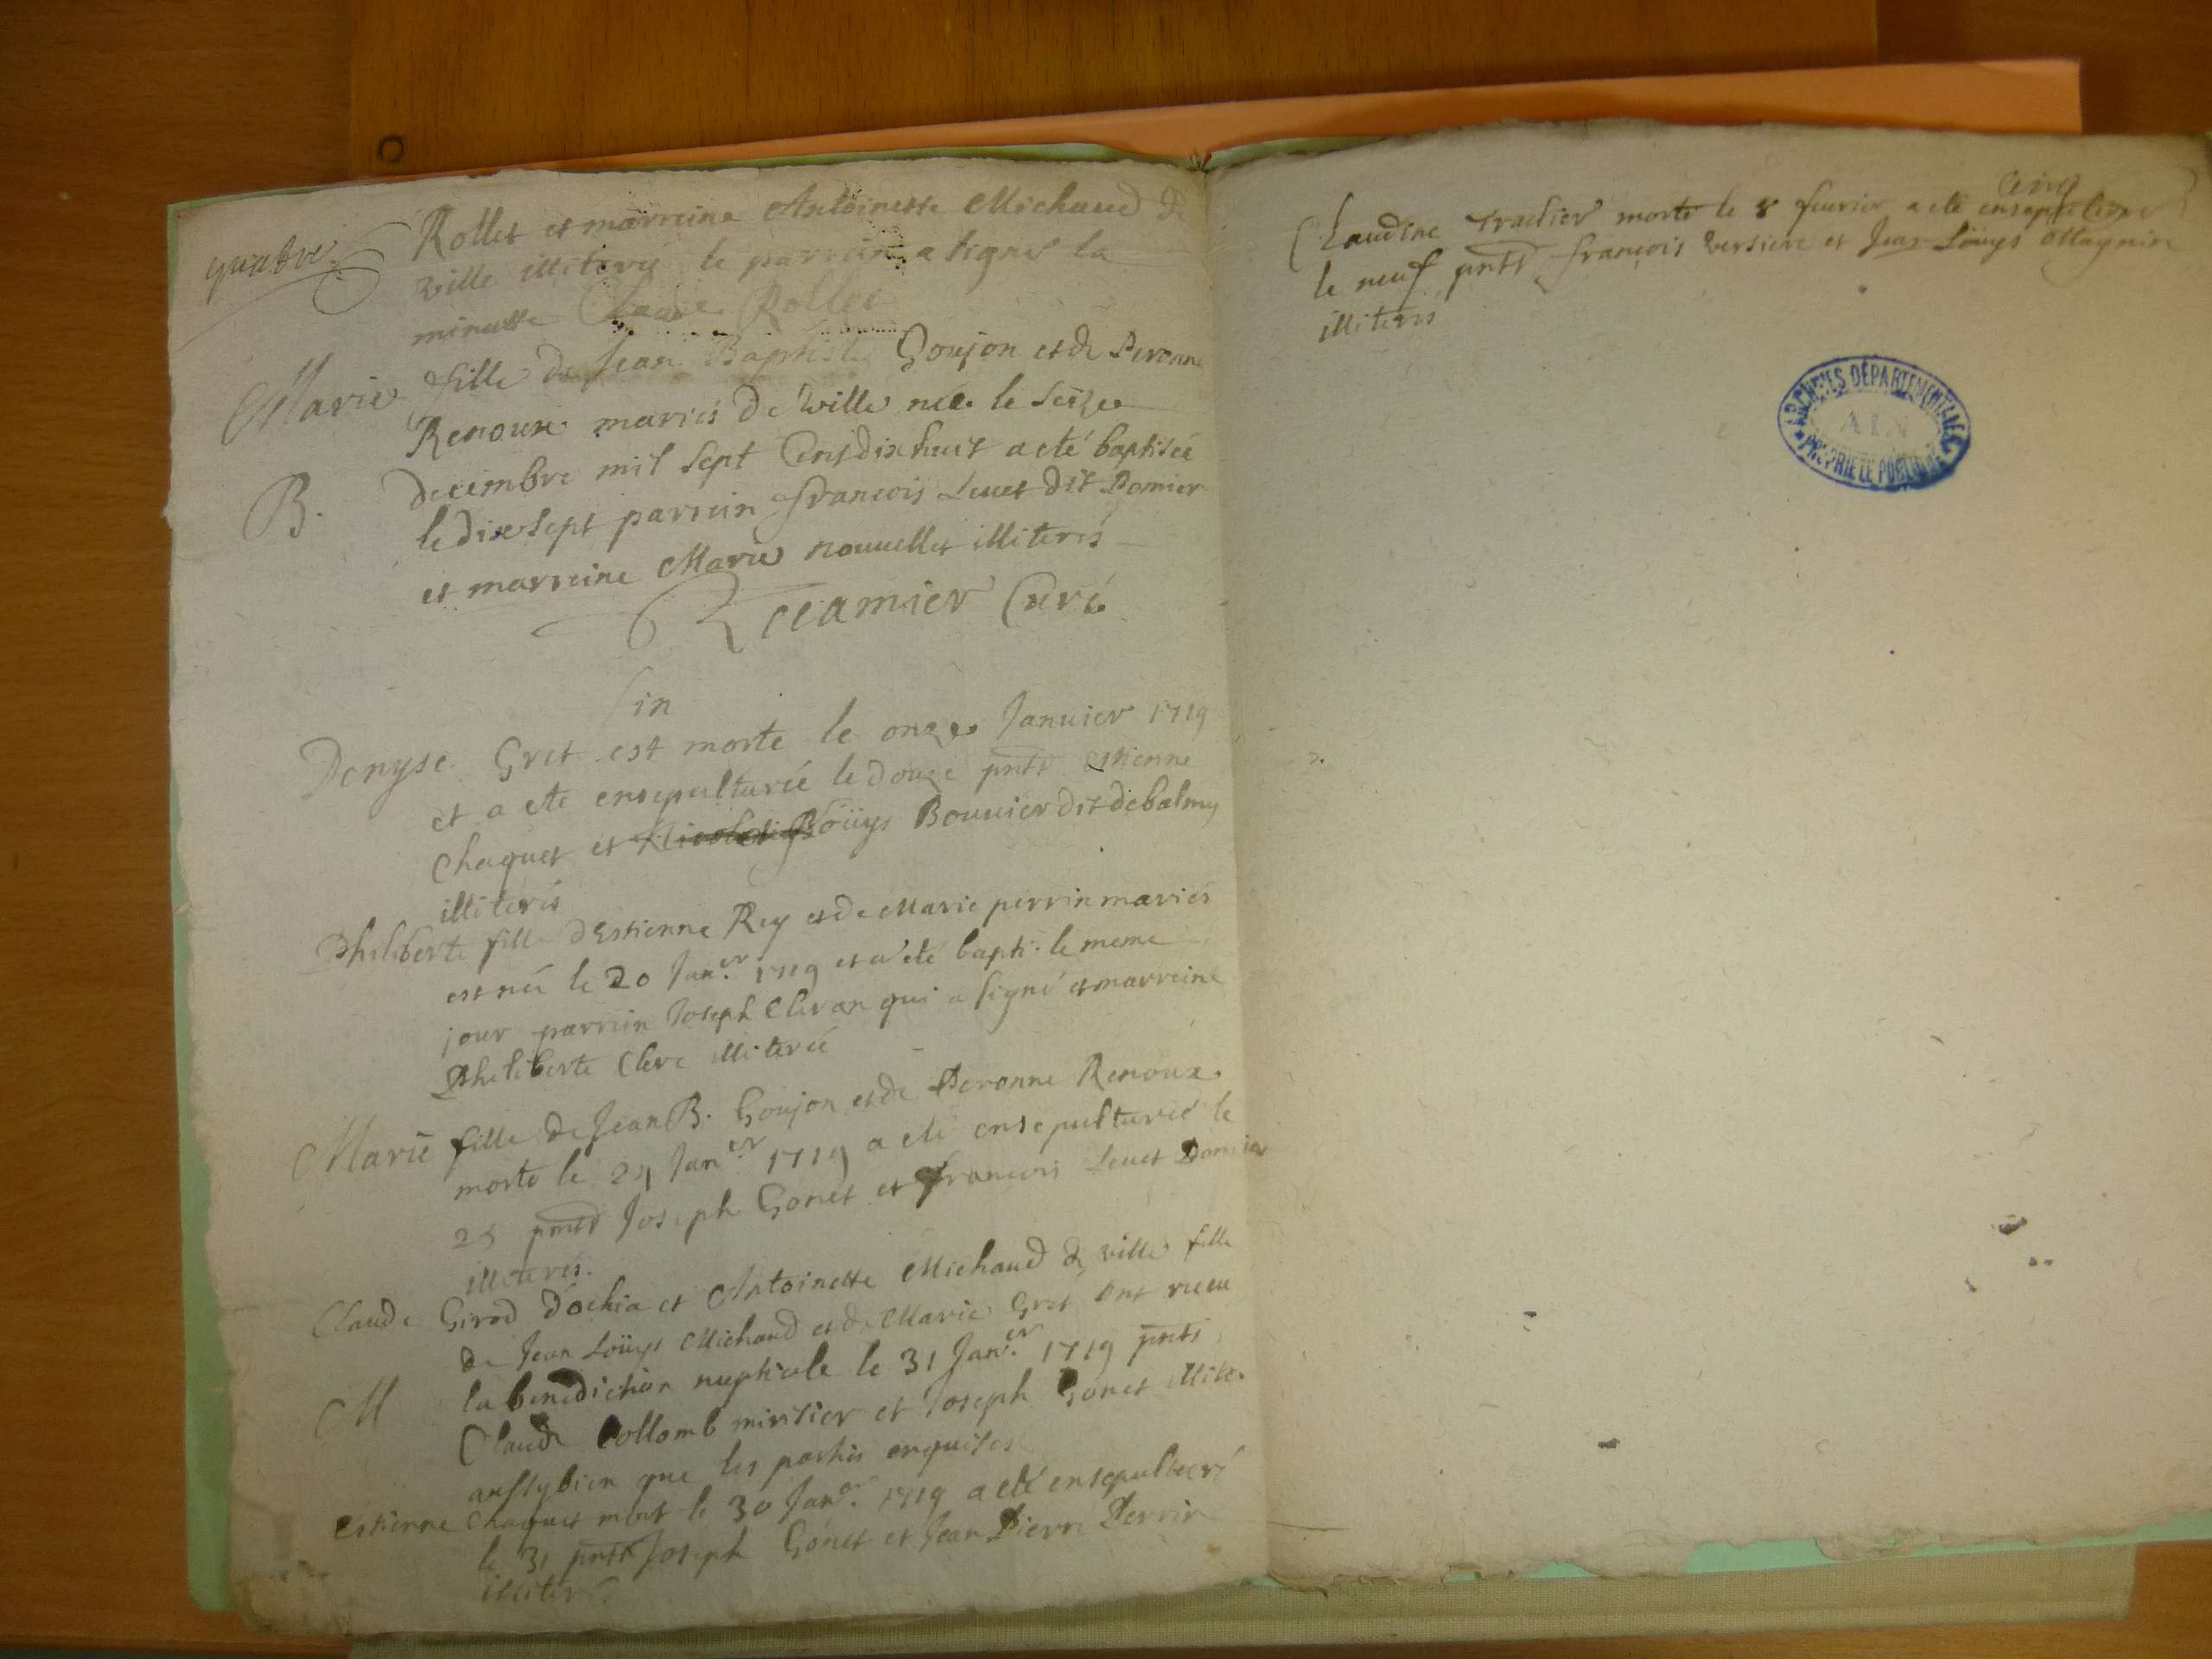 quatre
Rollet et marreine Antoinette Michaud de
ville illiteree le parrein a signé la
minutte Claude Rollet
Marie fille de Jean Baptiste Goujon et de Peronne
Renoux mariés de ville née le seize
B. decembre mil sept cens dix huit a eté baptisée
le dix sept parrein françois Levet dit Pomier
et marreine Marie nouvellet illiterés
Curé
fin
Denyse Gret est morte le onze Janvier 1719
et a ete ensepulturée le douze pnts Estienne
Chaquet et Löuys Bouvier dit debalmy
illiterés
Philiberte fille d'Estienne Rey et de Marie perrin mariés
est née le 20 Jan.er 1719 et a eté bapti. le meme
jour parrein Joseph qui a signé et marreine
Philiberte Clerc illiterée
Marie fille de Jean B. Goujon et de Peronne Renoux
morte le 24 Jan.er 1719 a eté ensepulturée le
25 pnts Joseph Gonet et françois Levet Pomier
illiterés.
Claude Girod d'ochia et Antoinette Michaud de ville fille
de Jean Löuys Michaud et de Marie Gret ont receu
M la benediction nuptiale le 31 Jan.er 1719 pnts
Claude Collomb minsier et Joseph Gonet illite.
aussy bien que les parties enquises
Estienne Chaquet mort le 30 Jan.er 1719 a eté ensepulturé
le 31 pnts Joseph Gonet et Jean Pierre Perrin
illiterés
cinq
Claudine morte le 8 fevrier a eté ensepulturée
le neuf pnts françois Versiere et Jean Löuys Magnin
illiterés
ARCHIVES DÉPARTEMENTALES
AIN
PROPRIÉTÉ PUBLIQUE